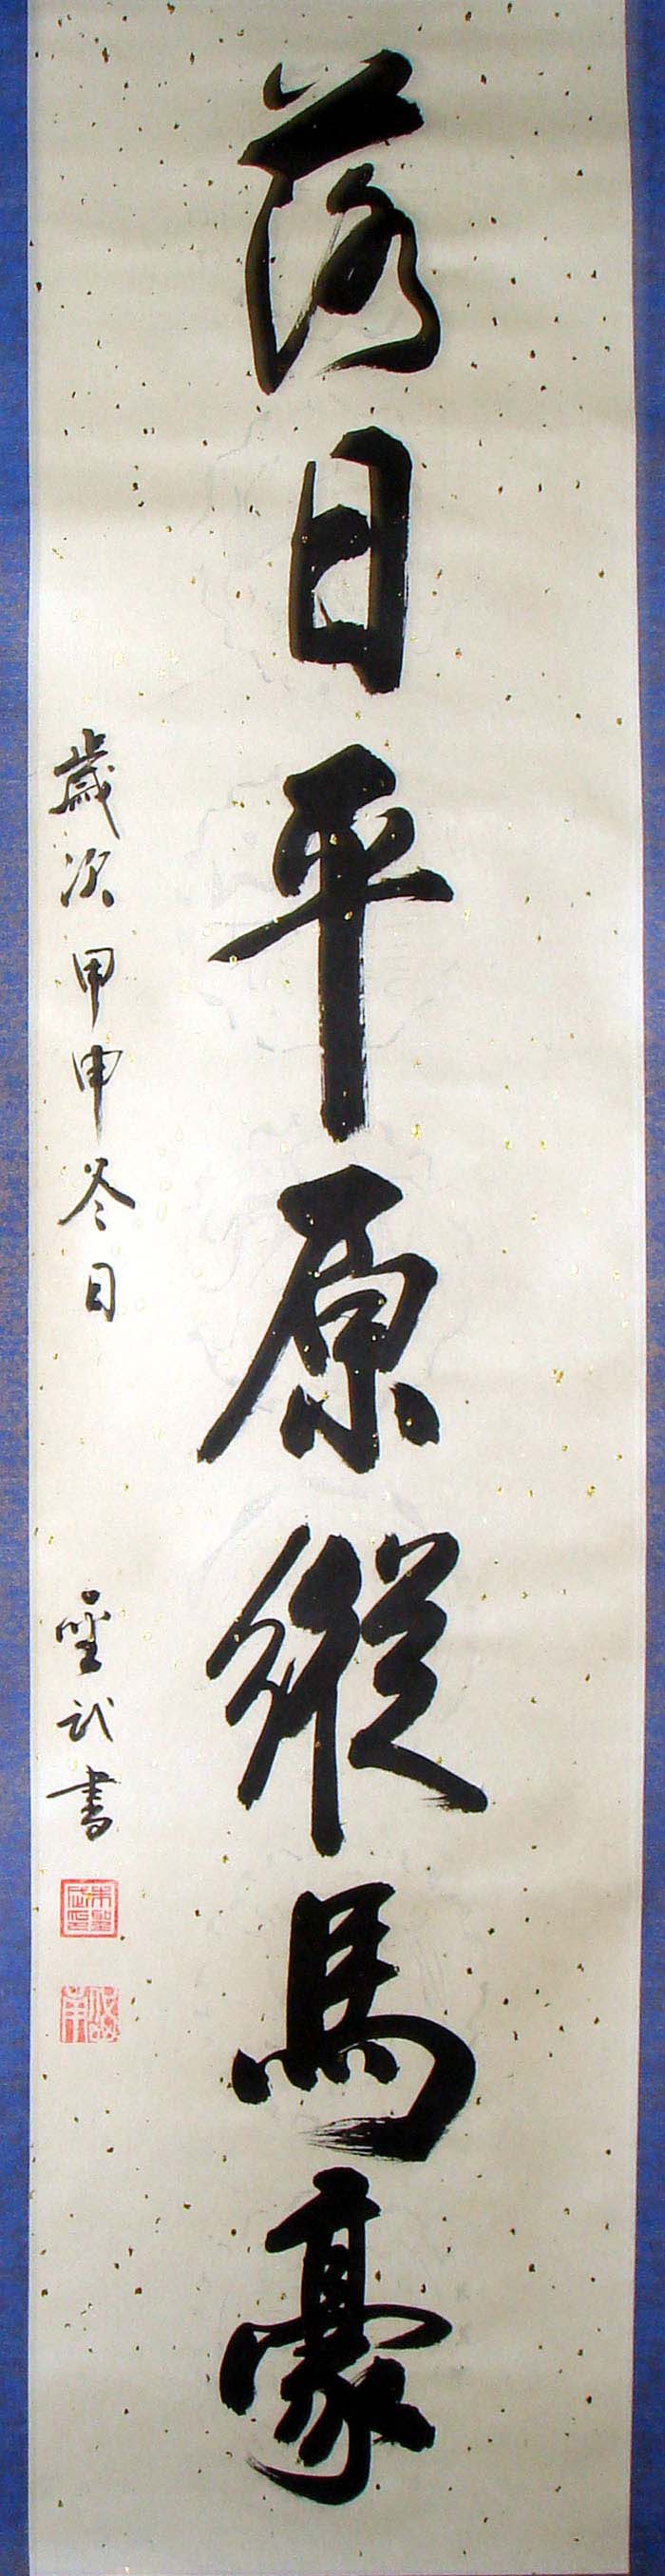 落日平原縱馬豪
歲次甲申冬日
聖武書